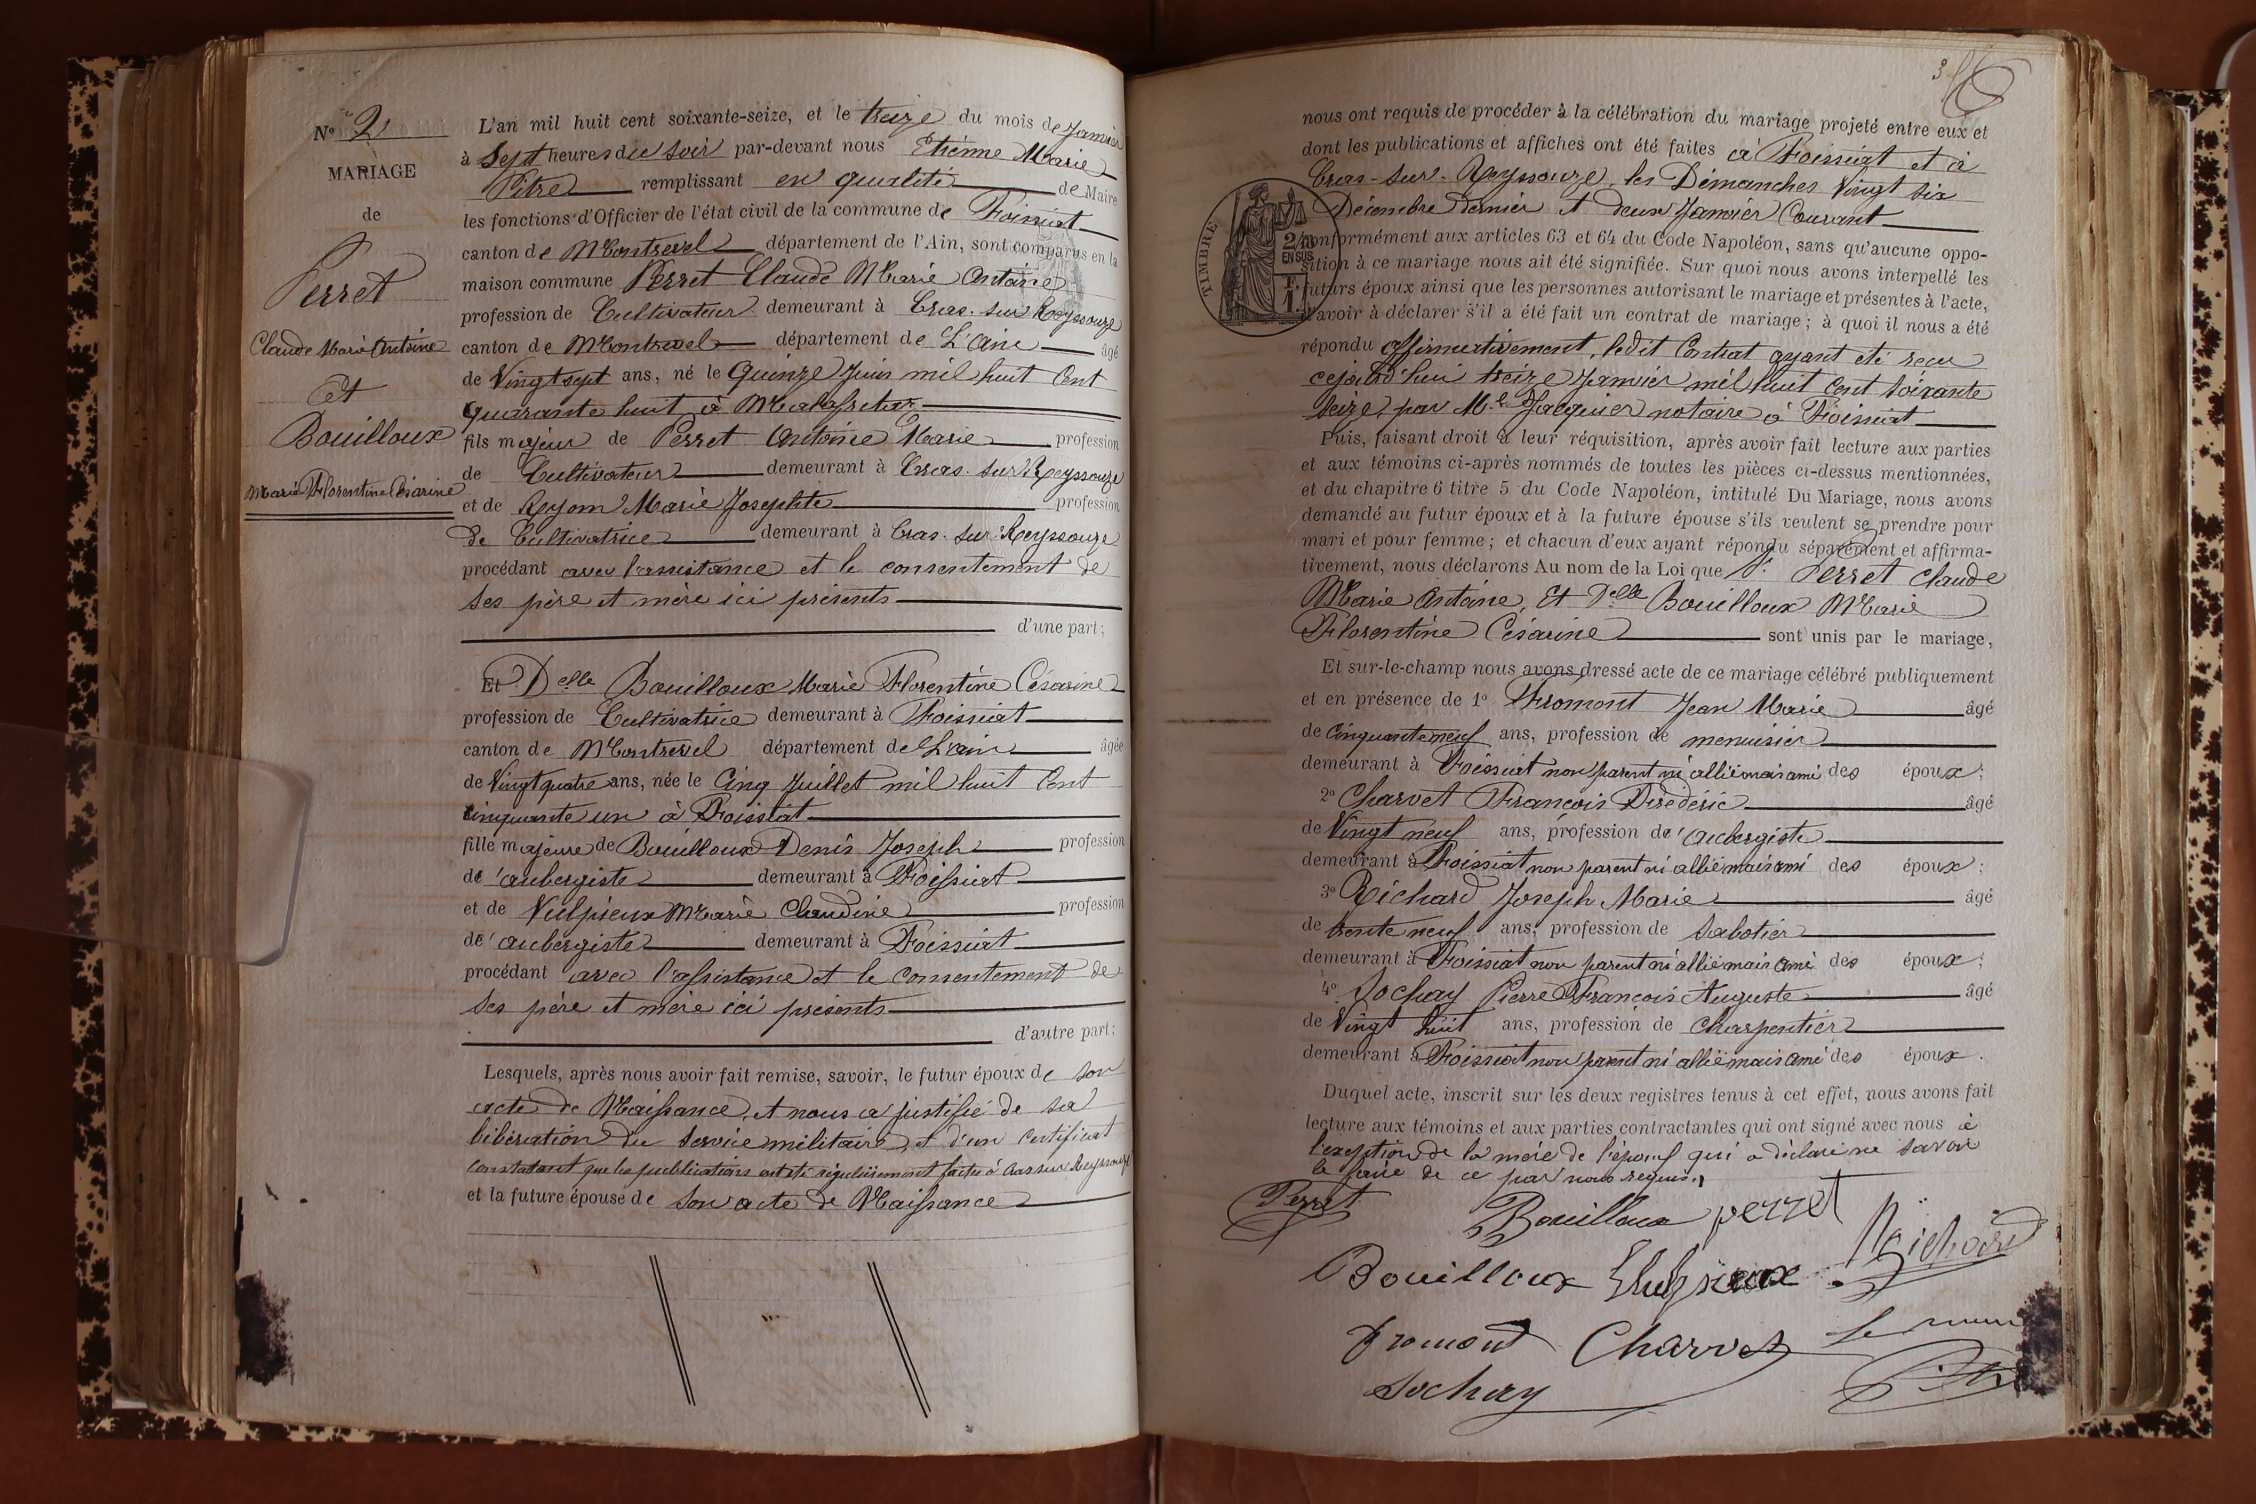 N° 2
MARIAGE
de
Perret
Claude Marie Antoine
Et
Bouilloux
Marie Florentine Césarine
L'an mil huit cent soixante-seize, et le treize du mois de Janvier
à Sept heures du soir par-devant nous Etienne Marie
Pitre remplissant en qualité de Maire
les fonctions d'Officier de l'état civil de la commune de Foissiat
canton de Montrevel département de l'Ain, sont comparus en la
maison commune Perret Claude Marie Antoine
profession de Cultivateur demeurant à Cras-sur Reyssouze
canton de Montrevel département de L'ain âgé
de Vingt sept ans, né le Quinze Juin mil huit Cent
quarante huit à Malafretaz
fils majeur de Perret Antoine Marie profession
de Cultivateur demeurant à Cras-sur Reyssouze
et de Reyom Marie Josephte profession
de Cultivatrice demeurant à Cras-sur Reyssouze
procédant avec l'assistance et le consentement de
ses père et mère ici présents
d'une part;
Et Delle Bouilloux Marie Florentine Césarine
profession de Cultivatrice demeurant à Foissiat
canton de Montrevel département de L'ain âgée
de Vingt quatre ans, née le Cinq Juillet mil huit Cent
cinquante un à Foissiat
fille majeure de Bouilloux Denis Joseph profession
de aubergiste demeurant à Foissiat
et de Vulpieux Marie Claudine profession
de aubergiste demeurant à Foissiat
procédant avec l'assistance et le consentement de
ses père et mère ici présents
d'autre part;
Lesquels, après nous avoir fait remise, savoir, le futur époux de son
acte de Naissance, et nous a justifié de sa
libération du service militaire, et d'un certificat
constatant que les publications ont été régulièrement faites à Cras sur Reyssouze
et la future épouse de son acte de Naissance
3
nous ont requis de procéder à la célébration du mariage projeté entre eux et
dont les publications et affiches ont été faites à Foissiat et à
Cras-sur-Reyssouze, les Dimanches Vingt six
Décembre dernier et deux Janvier Courant
TIMBRE
2/10
EN SUS
conformément aux articles 63 et 64 du Code Napoléon, sans qu'aucune oppo-
sition à ce mariage nous ait été signifiée. Sur quoi nous avons interpellé les
futurs époux ainsi que les personnes autorisant le mariage et présentes à l'acte,
d'avoir à déclarer s'il a été fait un contrat de mariage; à quoi il nous a été
répondu affirmativement, ledit Contrat ayant été reçu
cejourd'hui treize Janvier mil huit Cent soixante
seize, par Me Jacquier notaire à Foissiat
Puis, faisant droit à leur réquisition, après avoir fait lecture aux parties
et aux témoins ci-après nommés de toutes les pièces ci-dessus mentionnées,
et du chapitre 6 titre 5 du Code Napoléon, intitulé Du Mariage, nous avons
demandé au futur époux et à la future épouse s'ils veulent se prendre pour
mari et pour femme; et chacun d'eux ayant répondu séparément et affirma-
tivement, nous déclarons Au nom de la Loi que Sr Perret Claude
Marie Antoine, Et Delle Bouilloux Marie
Florentine Césarine sont unis par le mariage,
Et sur-le-champ nous avons dressé acte de ce mariage célébré publiquement
et en présence de 1° Fromont Jean Marie âgé
de Cinquante neuf ans, profession de menuisier
demeurant à Foissiat non parent ni allié mais ami des époux;
2° Charvet François Frédéric âgé
de Vingt neuf ans, profession de aubergiste
demeurant à Foissiat non parent ni allié mais ami des époux;
3° Richard Joseph Marie âgé
de trente neuf ans, profession de Sabotier
demeurant à Foissiat non parent ni allié mais ami des époux;
4° Sochay Pierre François Auguste âgé
de Vingt huit ans, profession de Charpentier
demeurant à Foissiat non parent ni allié mais ami des époux.
Duquel acte, inscrit sur les deux registres tenus à cet effet, nous avons fait
lecture aux témoins et aux parties contractantes qui ont signé avec nous à
l'exception de la mère de l'époux qui a déclaré ne savoir
le faire de ce par nous requis.
Perret
Bouilloux perret
Richard
Bouilloux
Fromont Charvet
Le maire
Sochay
Pitre